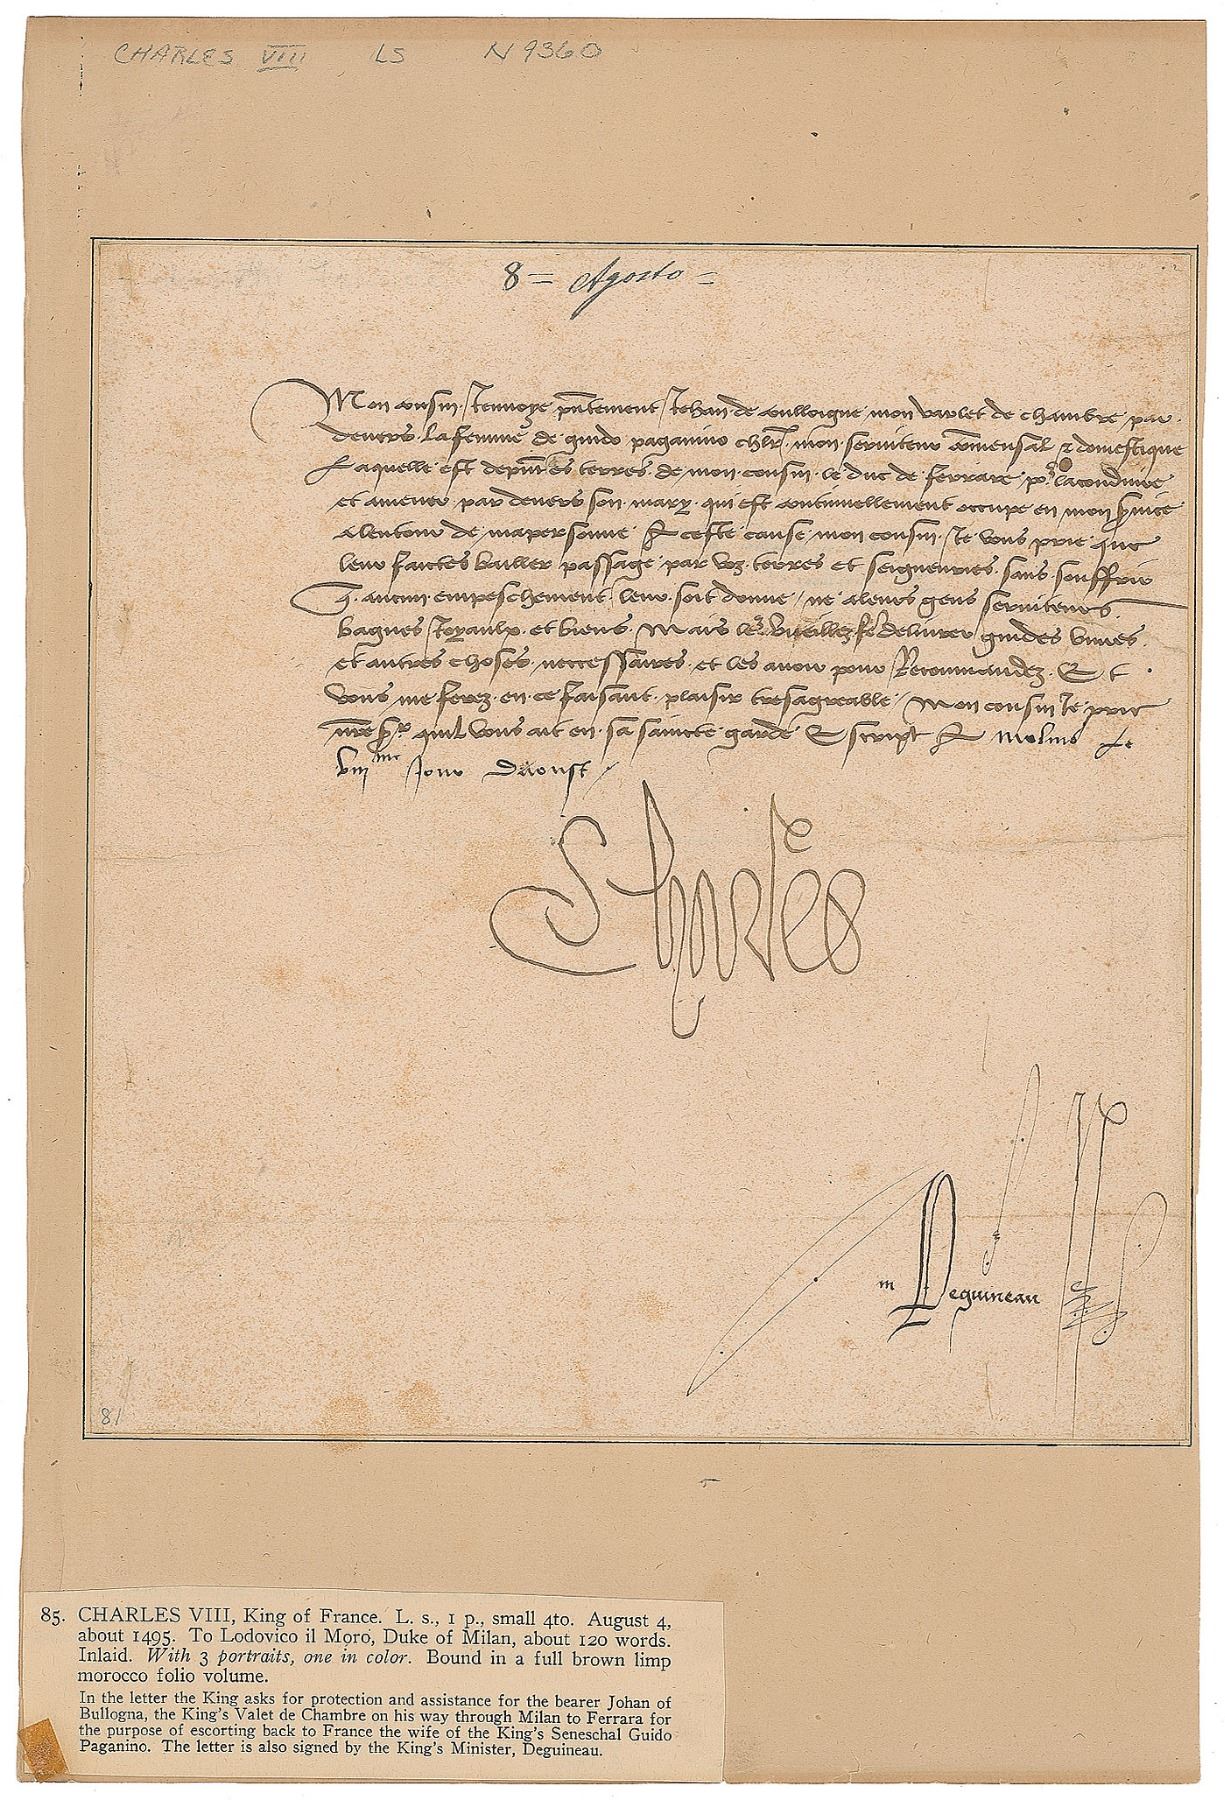 CHARLES VIII LS N 9360
8 = Agosto =
Mon cousin Jenvoye pntement Jehan de boulloigne mon varlet de chambre par
devers la femme de guido paganino chlr mon serviteur commensal & domestique
Laquelle est de pnt es terres de mon cousin le duc de ferrare pr la conduire
et amener par devers son mary qui est continuellement occupe en mon service
alentour de ma personne A ceste cause mon cousin Je vous prie que
leur faictes bailler passage par voz terres et seigneuries sans souffrir
q aucun empeschement leur soit donne ne a leurs gens serviteurs
bagues Joyaulx et biens Mais les vueillez fe delivrer guides vivres
et autres choses neccessaires et les avoir pour Recommandez Et
vous me ferez en ce faisant plaisir tresagreable Mon cousin Je prie
nre sr quil vous ait en sa saincte garde Escript A Molins Le
viiime Jour Daoust
Charles
m Deguineau
81
85. CHARLES VIII, King of France. L. s., 1 p., small 4to. August 4,
about 1495. To Lodovico il Moro, Duke of Milan, about 120 words.
Inlaid. With 3 portraits, one in color. Bound in a full brown limp
morocco folio volume.
In the letter the King asks for protection and assistance for the bearer Johan of
Bullogna, the King's Valet de Chambre on his way through Milan to Ferrara for
the purpose of escorting back to France the wife of the King's Seneschal Guido
Paganino. The letter is also signed by the King's Minister, Deguineau.